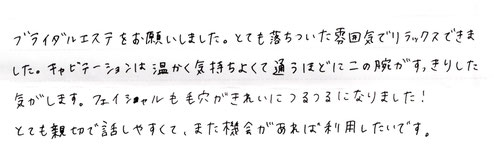 ブライダルエステをお願いしました。とても落ちついた雰囲気でリラックスできま
した。キャビテーションは温かく気持ちよくて通うほどに二の腕がすっきりした
気がします。フェイシャルも毛穴がきれいにつるつるになりました！
とても親切で話しやすくて、また機会があれば利用したいです。